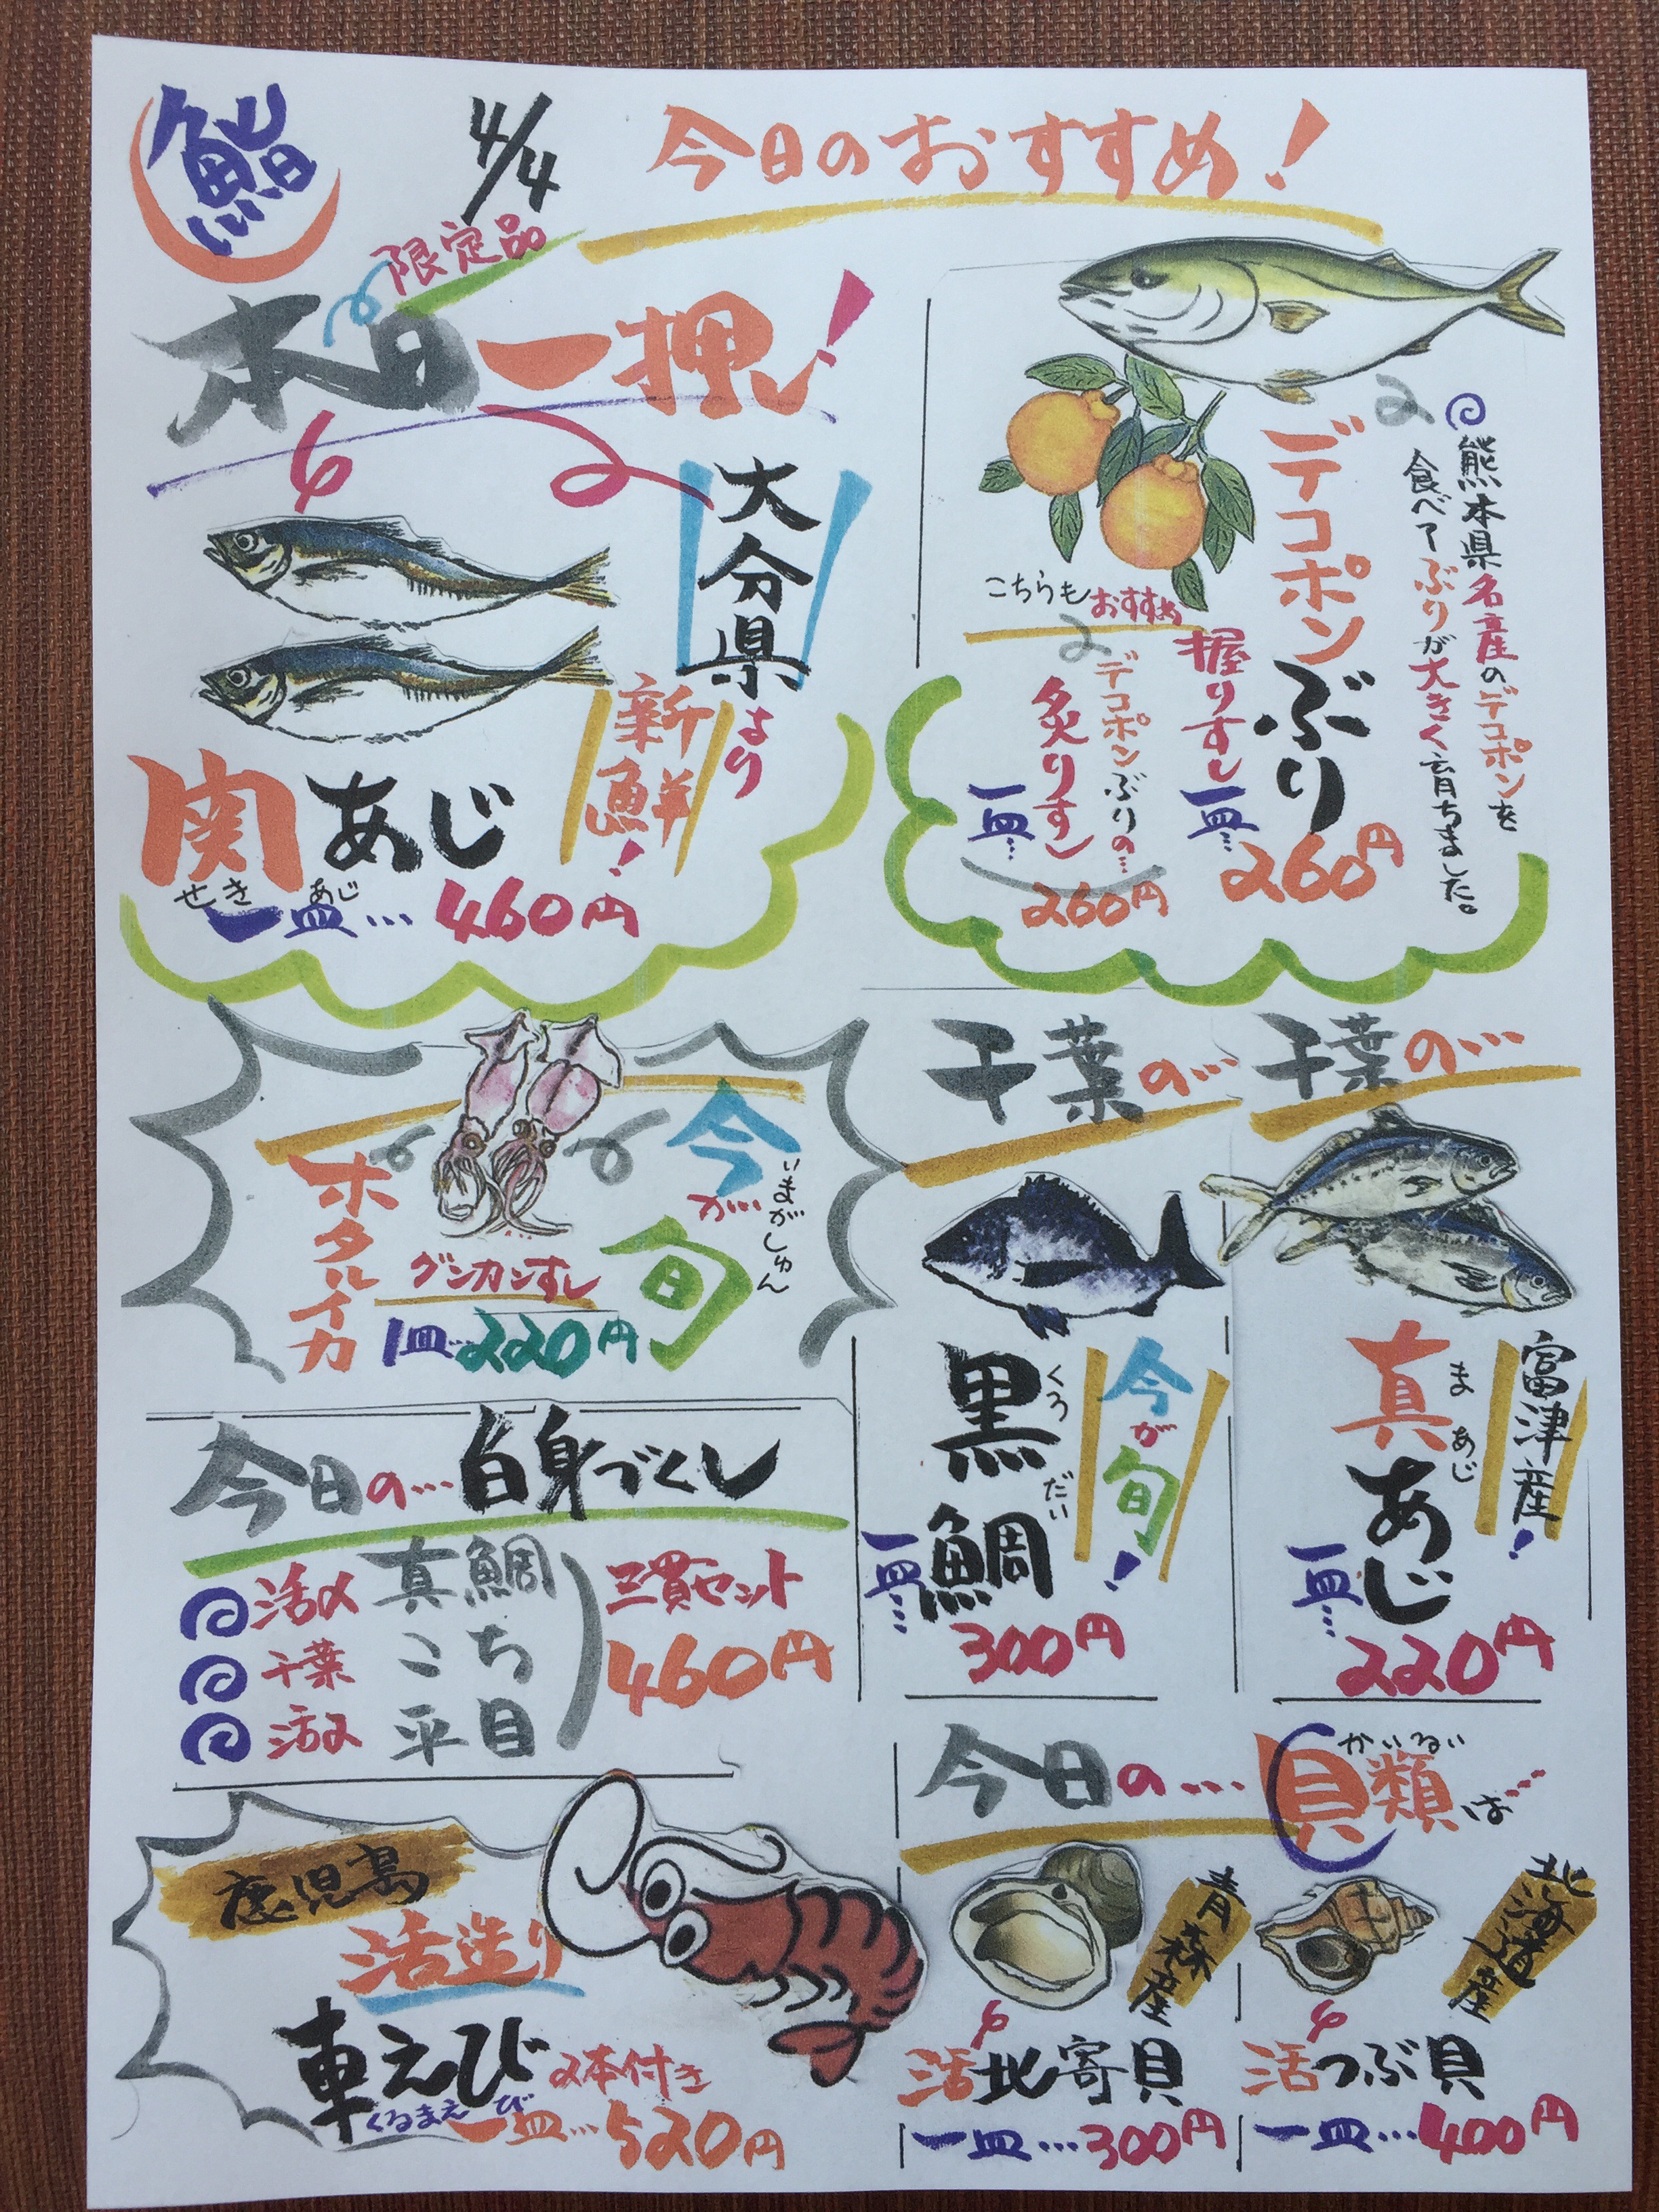 鮨
4/4
今日のおすすめ!
限定品
本日一押し!
大分県
より
新鮮!
関あじ
せき あじ
一皿… 460円
熊本県名産のデコポンを
食べてぶりが大きく育ちました。
デコポンぶり
握りずし
一皿…
260円
こちらもおすすめ
デコポンぶりの…
炙りずし
一皿…
260円
今が…旬
いまがしゅん
ホタルイカ
グンカンずし
1皿…220円
千葉の…
今が旬!
黒鯛
くろ だい
一皿…
300円
千葉の…
富津産!
真あじ
ま あじ
一皿…
220円
今日の…白身づくし
活〆 真鯛
千葉 こち
活〆 平目
三貫セット
460円
鹿児島
活造り
車えび 2本付き
くるまえび
一皿…520円
今日の…貝類は…
かいるい
青森産
活地寄貝
一皿…300円
北海道産
活つぶ貝
一皿…400円